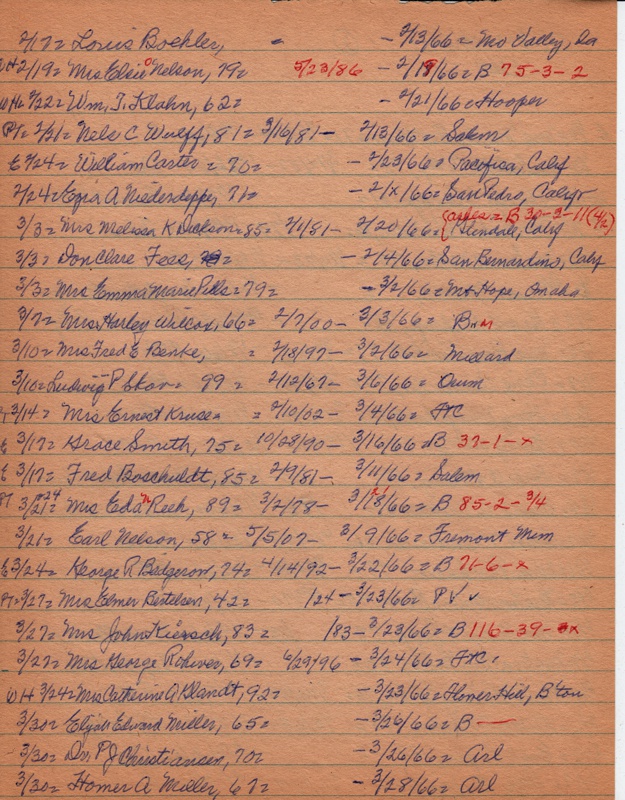 2/17= Louis Boehler, - - 2/13/66= Mo Valley, Ia
WH 2/19= Mrs Elsie O Nelson, 79= 5/23/86 - 2/18/66= B 75-3-2
WH= 2/22= Wm. T. Klahn, 62= - 2/21/66= Hooper
PT= 2/21= Nels C Wulff, 81= 3/16/81- 2/13/66= Salem
E 2/24= William Carter = 70= - 2/23/66= Pacifica, Calif
2/24= Ezra A Niederdeppe, 71= - 2/x/66= San Pedro, Calif
(ashes = B 30-2-11(4/2)
3/3= Mrs Melissa K Dickson=85= 2/1/81- 2/20/66= Glendale, Calif
3/3= Don Clare Fees, = - 2/4/66= San Bernardino, Calif
3/3= Mrs Emma Marie Pells=79= - 3/2/66= Mt Hope, Omaha
3/7= Mrs Harley Wilcox, 66= 2/7/00- 3/3/66= B
3/10= Mrs Fred E Benke, = 2/18/97- 3/2/66= Millard
3/10= Ludwig P Skov= 99= 2/12/67- 3/6/66= Orum
3/14= Mrs Ernest Kruse= = 2/10/02- 3/4/66= FtC
E 3/17= Grace Smith, 75= 10/28/90- 3/16/66=B 37-1-x
E 3/17= Fred Boschuldt, 85= 2/9/81- 3/11/66= Salem
PT 3/21= 24 Mrs Eda N Reeh, 89= 3/2/78- 3/18/66= B 85-2-3/4
3/21= Earl Nelson, 58= 5/5/07- 3/9/66= Fremont Mem
E 3/24= George R Badgerow, 74= 4/14/92- 3/22/66= B 71-6-x
PT=3/27= Mrs Elmer Bertelsen, 42= /24- 3/23/66= PV ✓
3/27= Mrs John Kiersch, 83= /83- 3/23/66= B 116-39-x
3/27= Mrs George Rohwer, 69= 6/29/96- 3/24/66= FtC
WH 3/24= Mrs Catherine A Klandt, 92= - 3/23/66= Homer Hill, B'ton
3/30= Elijah Edward Miller, 65= - 3/26/66= B —
3/30= Dr. P J Christiansen, 70= - 3/26/66= Arl
3/30= Homer A Miller, 67= - 3/28/66= Arl